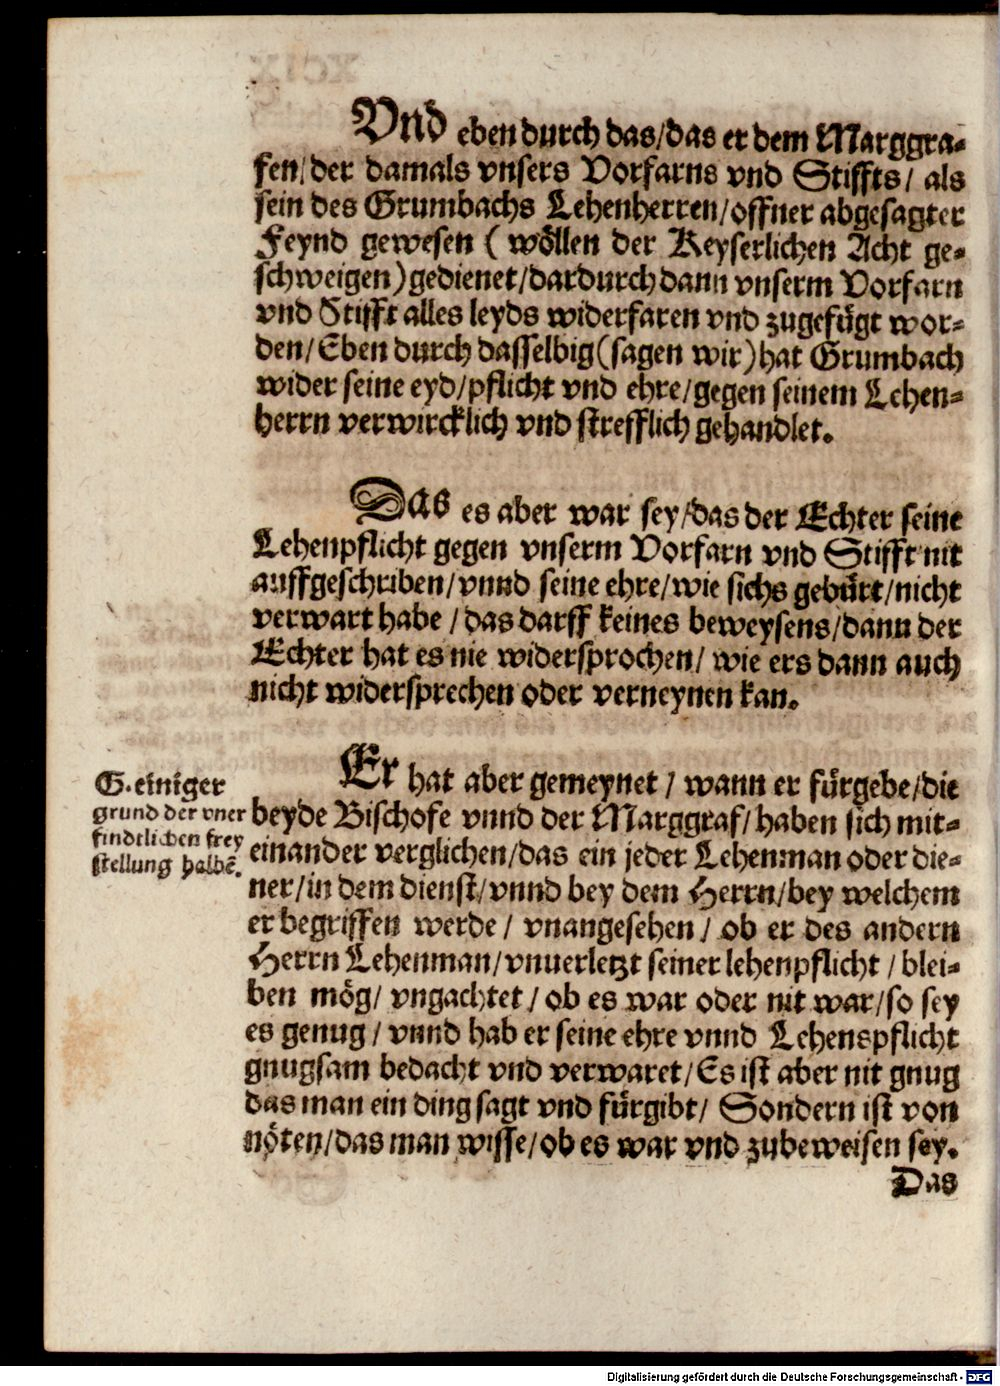 Vnd eben durch das/das er dem Marggra-
fen/der damals vnsers Vorfarns vnd Stiffts/ als
sein des Grumbachs Lehenherren/offner abgesagter
Feynd gewesen ( wöllen der Keyserlichen Acht ge-
schweigen) gedienet/dardurch dann vnserm Vorfarn
vnd Stifft alles leyds widerfaren vnd zugefügt wor-
den/Eben durch dasselbig(sagen wir)hat Grumbach
wider seine eyd/pflicht vnd ehre/gegen seinem Lehen-
herrn verwircklich vnd strefflich gehandlet.
Das es aber war sey/das der Echter seine
Lehenpflicht gegen vnserm Vorfarn vnd Stifft nit
auffgeschriben/vnnd seine ehre/wie sichs gebürt/nicht
verwart habe /das darff keines beweysens/dann der
Echter hat es nie widersprochen/ wie ers dann auch
nicht widersprechen oder verneynen kan.
G. einiger
grund der vner
findtlichen frey
stellung halbē.
Er hat aber gemeynet / wann er fürgebe/die
beyde Bischofe vnnd der Marggraf/haben sich mit-
einander verglichen/das ein jeder Lehenman oder die-
ner/in dem dienst/vnnd bey dem Herrn/bey welchem
er begriffen werde / vnangesehen / ob er des andern
Herrn Lehenman/vnuerletzt seiner lehenpflicht / blei-
ben mög/ vngachtet / ob es war oder nit war/so sey
es genug / vnnd hab er seine ehre vnnd Lehenspflicht
gnugsam bedacht vnd verwaret/Es ist aber nit gnug
das man ein ding sagt vnd fürgibt/ Sondern ist von
nöten/das man wisse/ob es war vnd zubeweisen sey.
Das
Digitalisierung gefördert durch die Deutsche Forschungsgemeinschaft - DFG